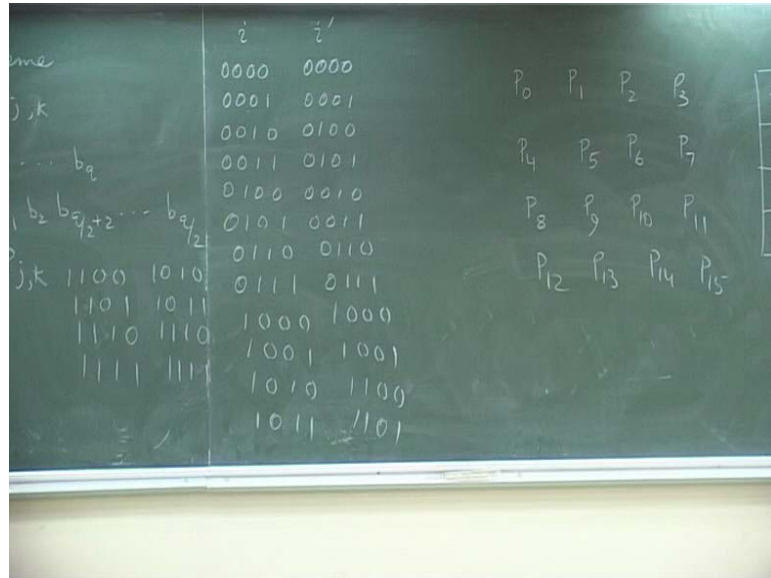 eme
j,k
... b_q
b_2 b_{q/2+2} ... b_{q/2}
j,k 1100 1010
1101 1011
1110 1110
1111 1111
i i'
0000 0000
0001 0001
0010 0100
0011 0101
0100 0010
0101 0011
0110 0110
0111 0111
1000 1000
1001 1001
1010 1100
1011 1101
P_0 P_1 P_2 P_3
P_4 P_5 P_6 P_7
P_8 P_9 P_10 P_11
P_12 P_13 P_14 P_15